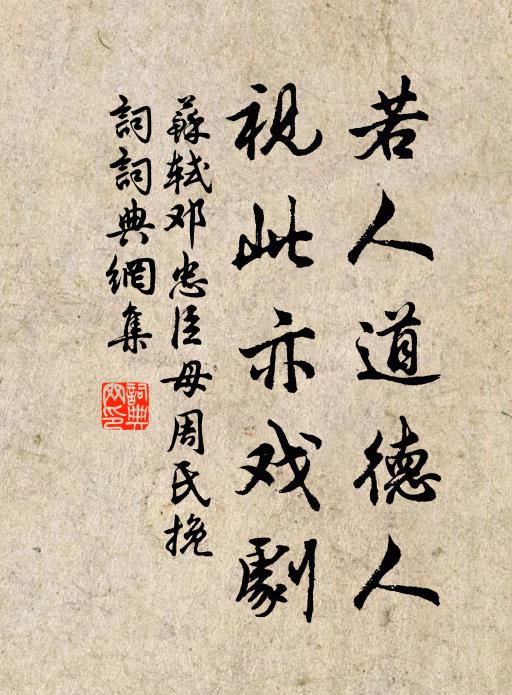 若人道德人
視此亦戏劇
蘇軾邓忠臣母周氏挽
詞詞典網集
詞典
网印